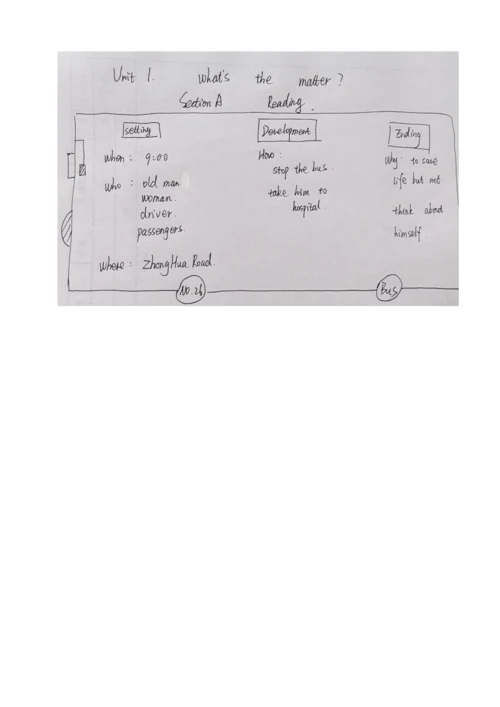 Unit 1. What's the matter?
Section A Reading.
setting
When: 9:00
Who: old man.
woman.
driver.
passengers.
Where: ZhongHua Road.
Development
How:
stop the bus.
take him to
hospital.
Ending
Why: to save
life but not
think about
himself.
No.26
Bus